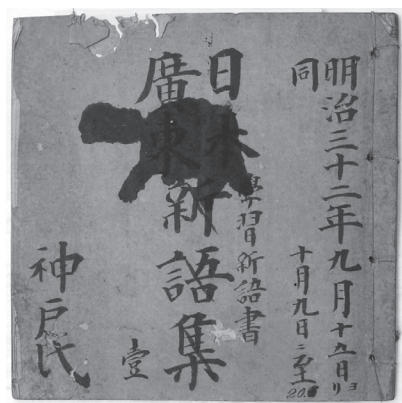 明治三十二年九月十五日ヨリ
同 十月九日ニ至
日本
學習新語書
廣東新語集
壹
神戸氏